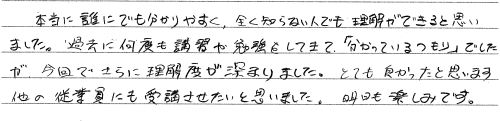 本当に誰にでも分かりやすく、全く知らない人でも理解ができると思い
ました。過去に何度も講習や勉強をしてきて、「分かっているつもり」でした
が、今回でさらに理解度が深まりました。とても良かったと思います
他の従業員にも受講させたいと思いました。明日も楽しみです。